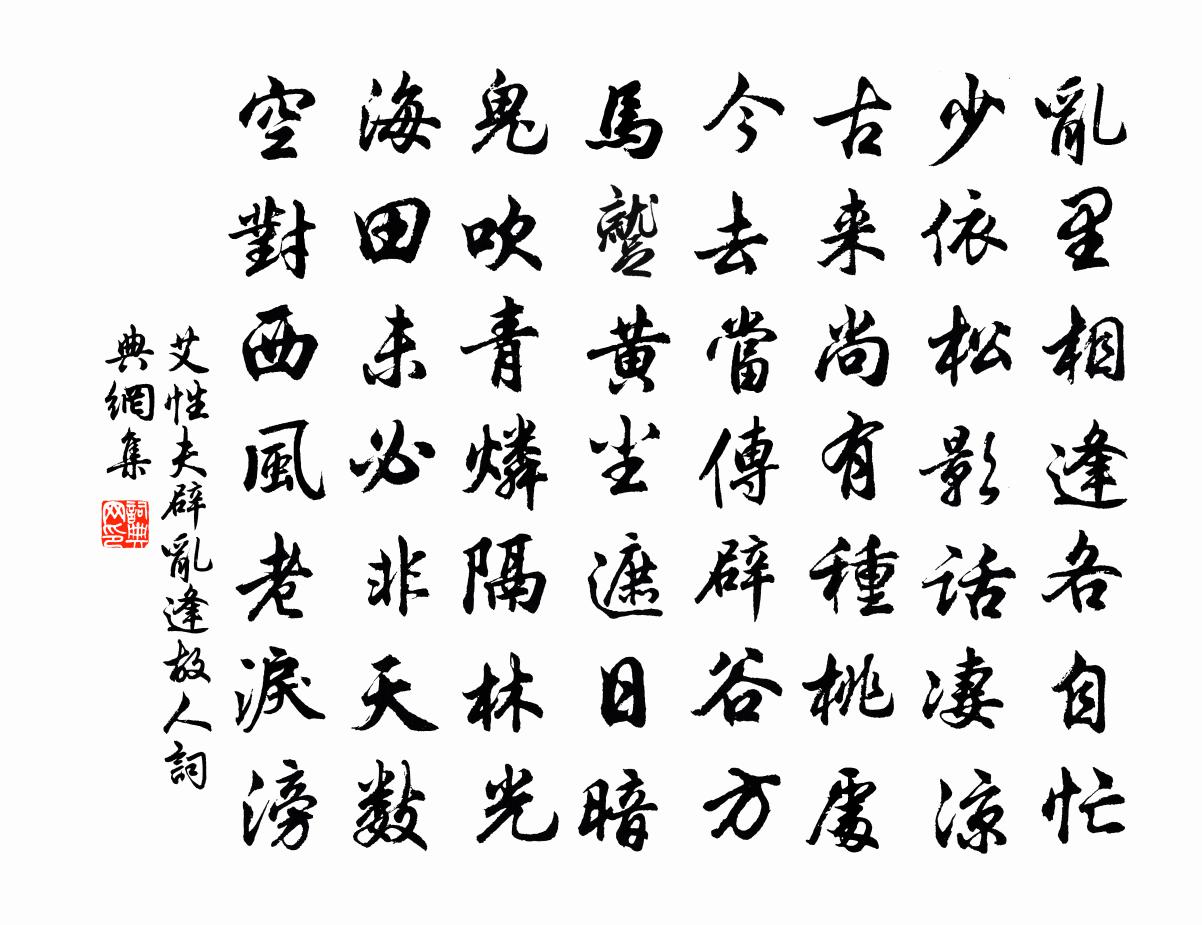 亂里相逢各自忙
少依松影話凄涼
古来尚有種桃處
今去當傳辟谷方
馬蹵黃尘遮日暗
鬼吹青燐隔林光
海田未必非天数
空對西風老淚滂
艾性夫辟亂逢故人詞
典網集
詞典网印